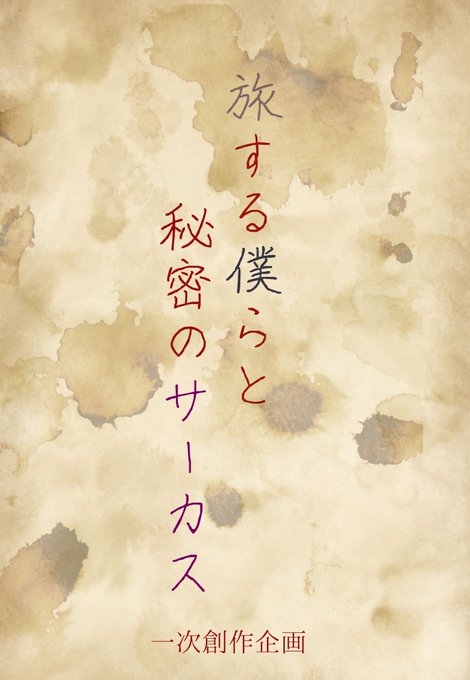 旅する僕らと
秘密のサーカス
一次創作企画